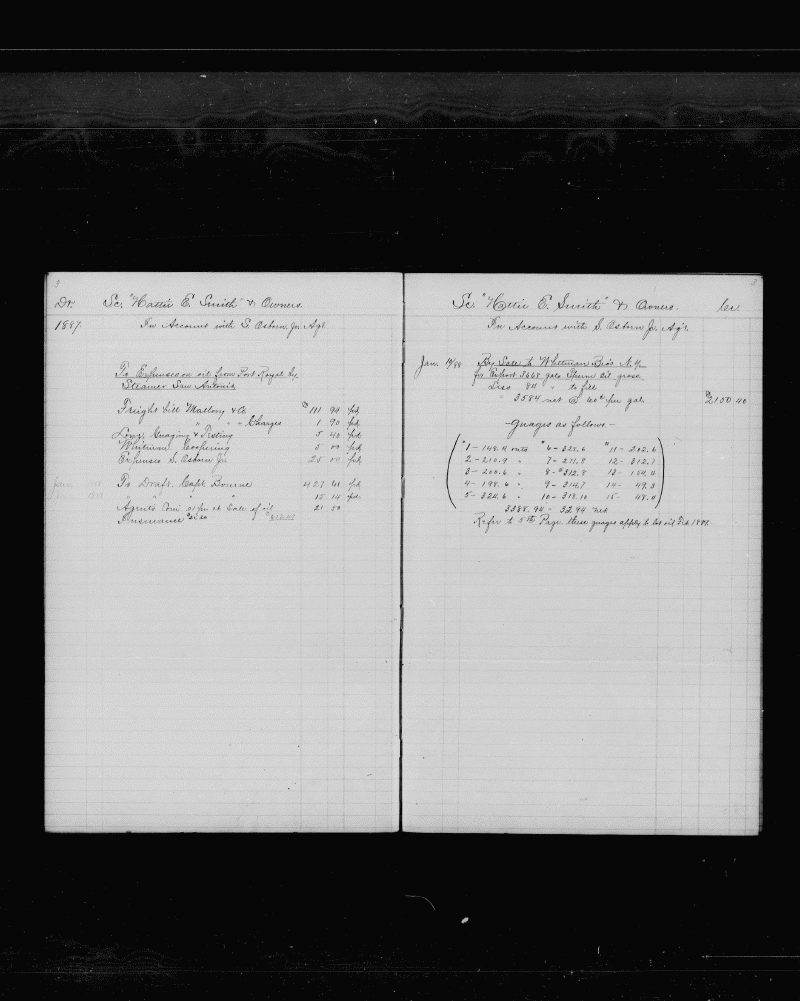 Dr. Sc. "Hattie E. Smith" & Owners.
1887. In Account with S. Osborn Jr. Agt.
To Expenses on oil from Port Royal by
Steamer San Antonio
Freight bill Mallory & Co $ 111 94 pd
" " " Charges 1 90 pd
Guaging & Testing 5 40 pd
Whitman Coopering 5 00 pd
Expenses S. Osborn Jr. 25 00 pd
To Draft. Capt. Bourne 427 61 pd
" " " " 15 14 pd
Agents Com. on Sale of oil 21 50
Insurance
Sc. "Hattie E. Smith" & Owners. Cr.
In Account with S. Osborn Jr. Agt.
Jan. 14/88 By Sale to Whitman Bro's N.Y.
for 3668 gals Sperm oil gross
Less 84 " to fill
" 3584 net @ 60¢ per gal. $2150 40
-guages as follows-
1- 148.4 outs 6- 328.6 11- 202.6
2- 210.9 " 7- 271.8 12- 312.7
3- 200.6 " 8- 312.8 13- 154.4
4- 198.6 " 9- 314.7 14- 49.3
5- 324.6 " 10- 318.10 15- 48.4
3388.94 - 3294 net
Refer to 5th Page these guages apply to lot oil Feb. 1889.